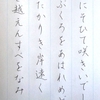 にそひて咲きいで
ぶくろをあはれめば
たかりき岸遠く
越えんすべをなみ